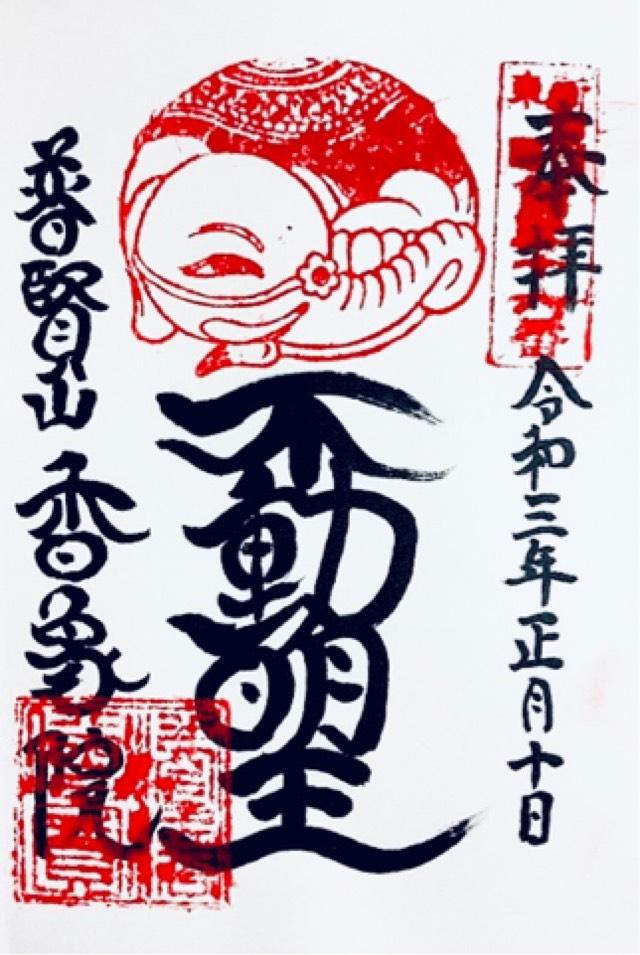 奉拝
令和三年正月十日
不動明王
普賢山 香象院